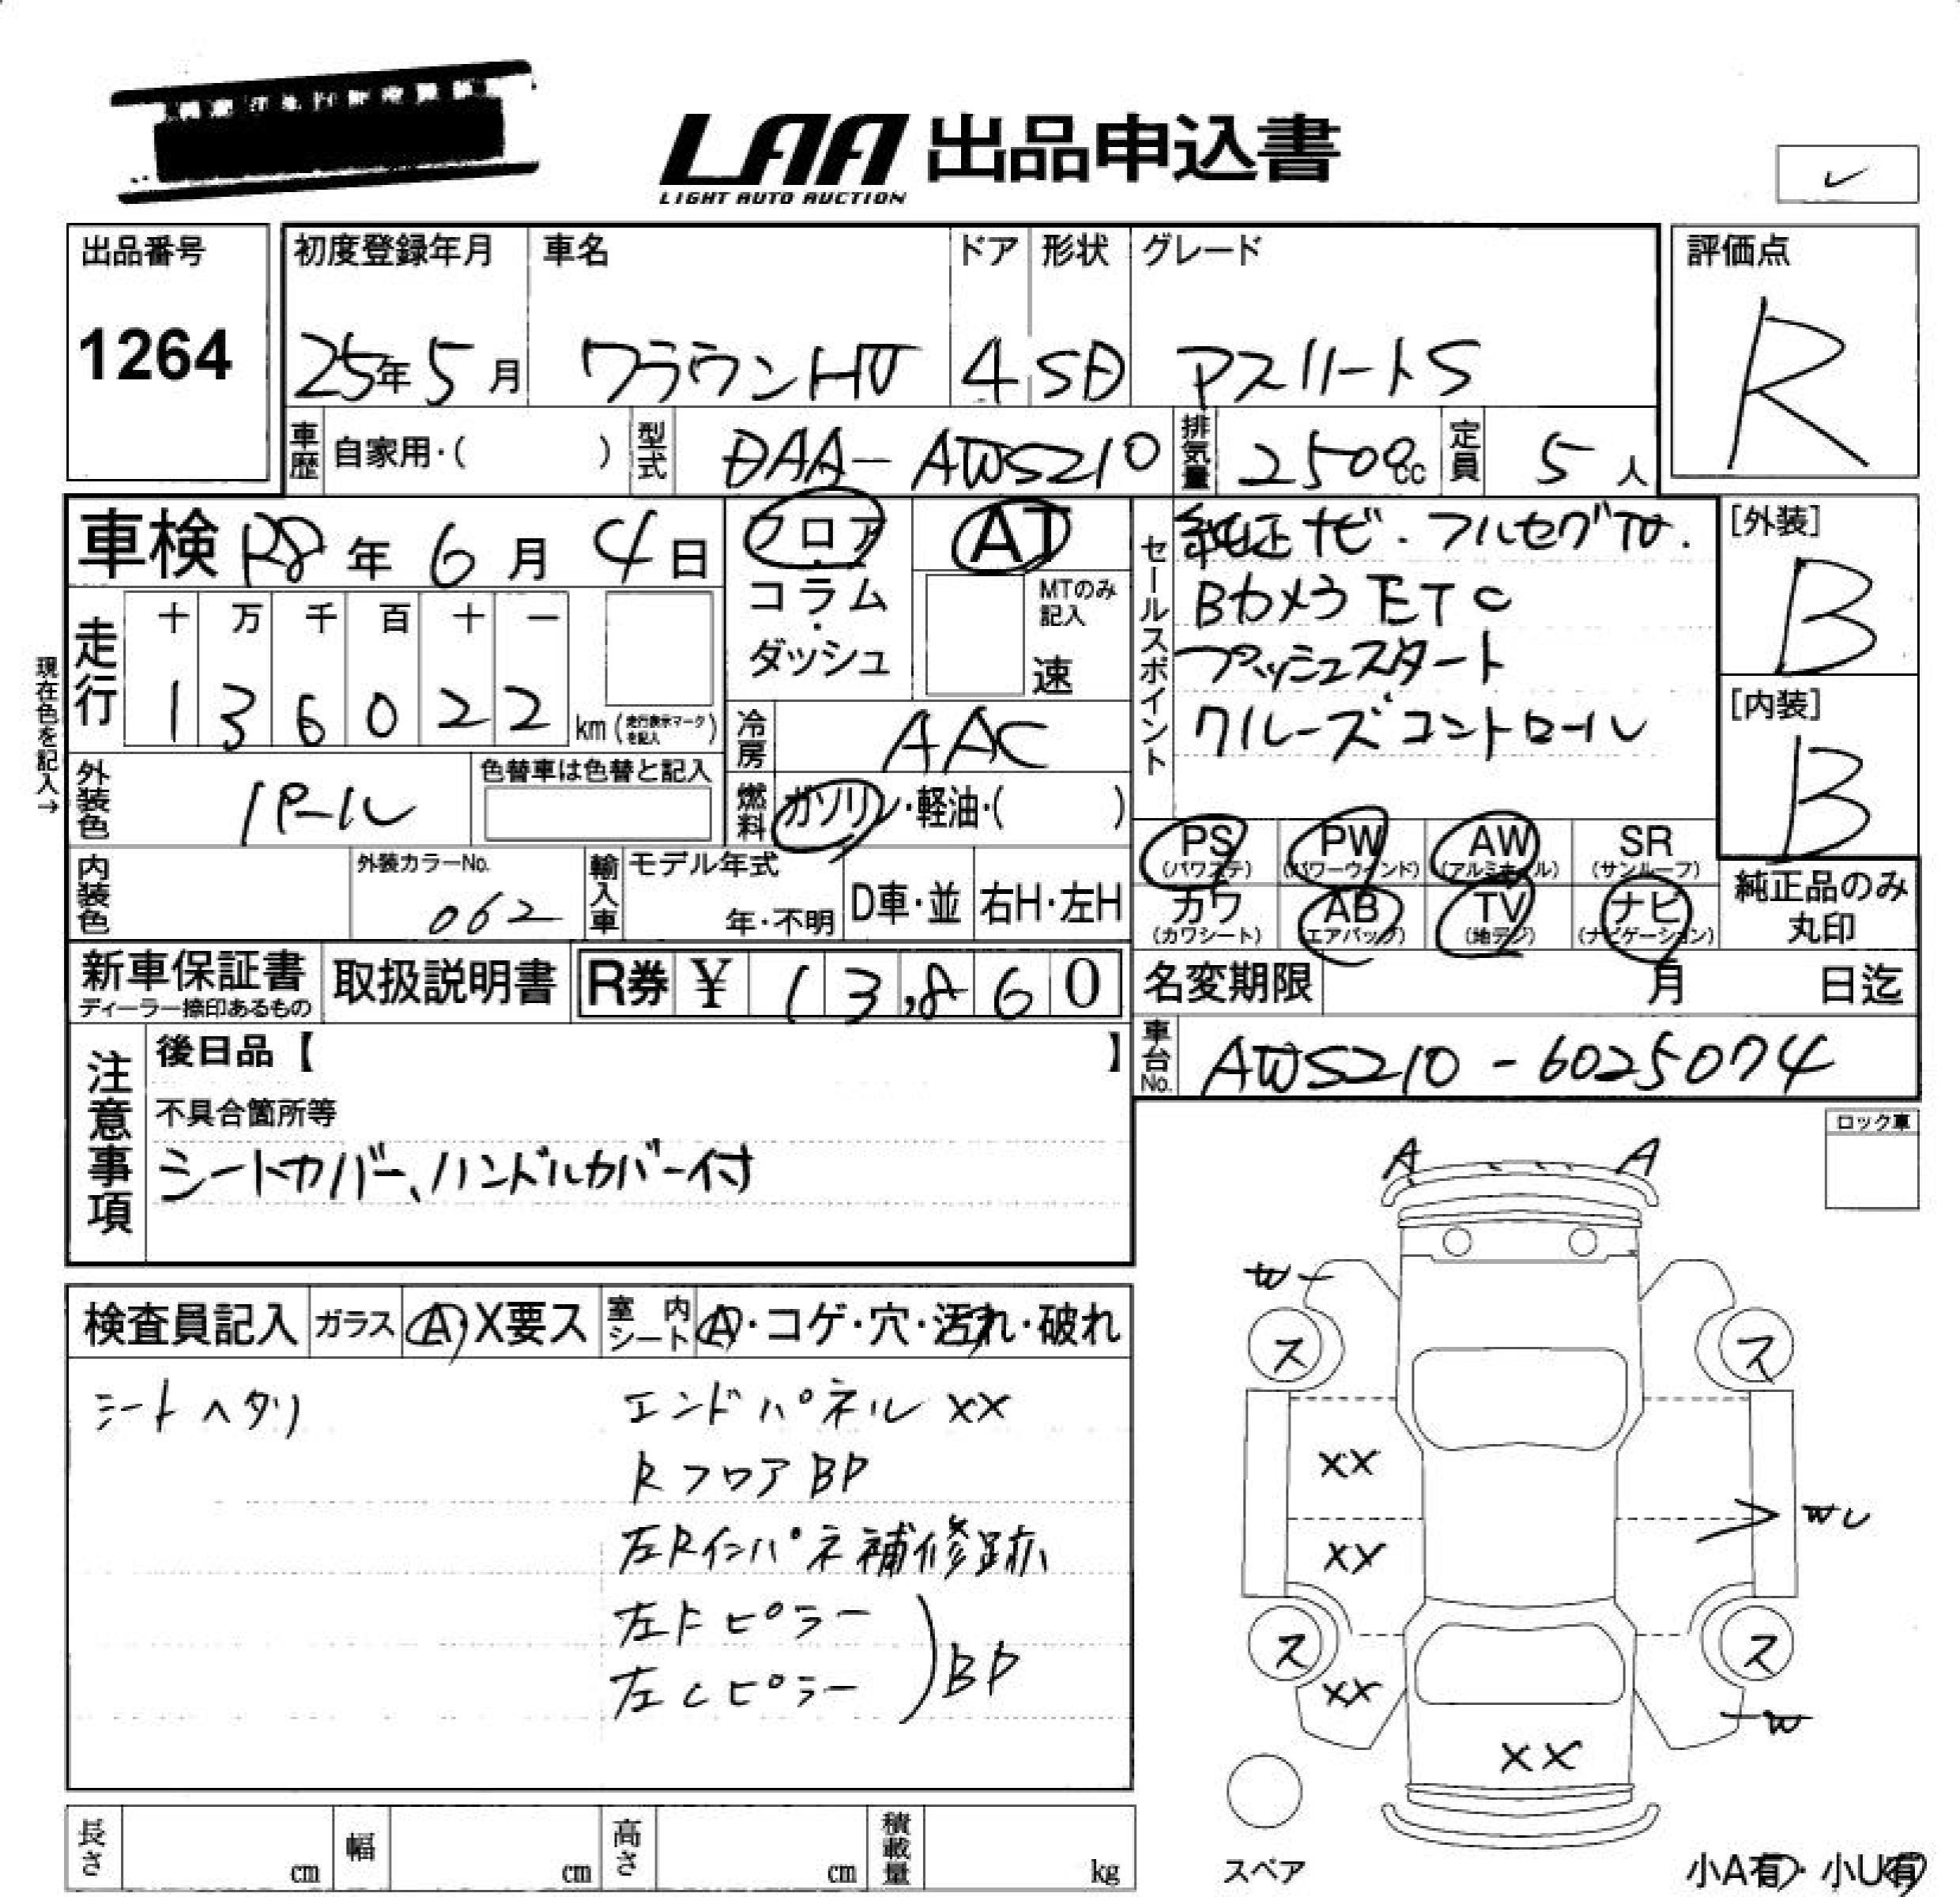 LAA 出品申込書
LIGHT AUTO AUCTION
出品番号
1264
初度登録年月
25年5月
車名
クラウンHV
ドア
4
形状
SD
グレード
アスリートS
評価点
R
車歴 自家用・( )
型式 DAA-AWS210
排気量 2500cc
定員 5人
車検 R8年6月4日
フロア・コラム・ダッシュ
AT
MTのみ記入
速
走行
十 万 千 百 十 一
1 3 6 0 2 2 km (走行表示マークを記入)
現在色を記入→
冷房 AAC
外装色 パール
色替車は色替と記入
燃料 ガソリン・軽油・( )
内装色
外装カラーNo.
062
輸入車
モデル年式
年・不明
D車・並
右H・左H
セールスポイント
純正ナビ・フルセグTV.
Bカメラ ETC
プッシュスタート
クルーズコントロール
[外装]
B
[内装]
B
PS (パワステ)
PW (パワーウインド)
AW (アルミホイール)
SR (サンルーフ)
カワ (カワシート)
AB (エアバッグ)
TV (地デジ)
ナビ (ナビゲーション)
純正品のみ丸印
新車保証書
ディーラー捺印あるもの
取扱説明書
R券 ¥ 13,860
名変期限 月 日迄
車台No. AWS210-6025074
注意事項
後日品【 】
不具合箇所等
シートカバー、ハンドルカバー付
ロック車
検査員記入
ガラス A・X要ス
室内シート A・コゲ・穴・汚れ・破れ
シートヘタリ
エンドパネル XX
Rフロア BP
左Rインパネ補修跡
左Fピラー
左Cピラー
BP
A A
W
ス ス
XX
W U
XX
ス ス
XX
W
XX
スペア
小A有・小U有
長さ cm
幅 cm
高さ cm
積載量 kg